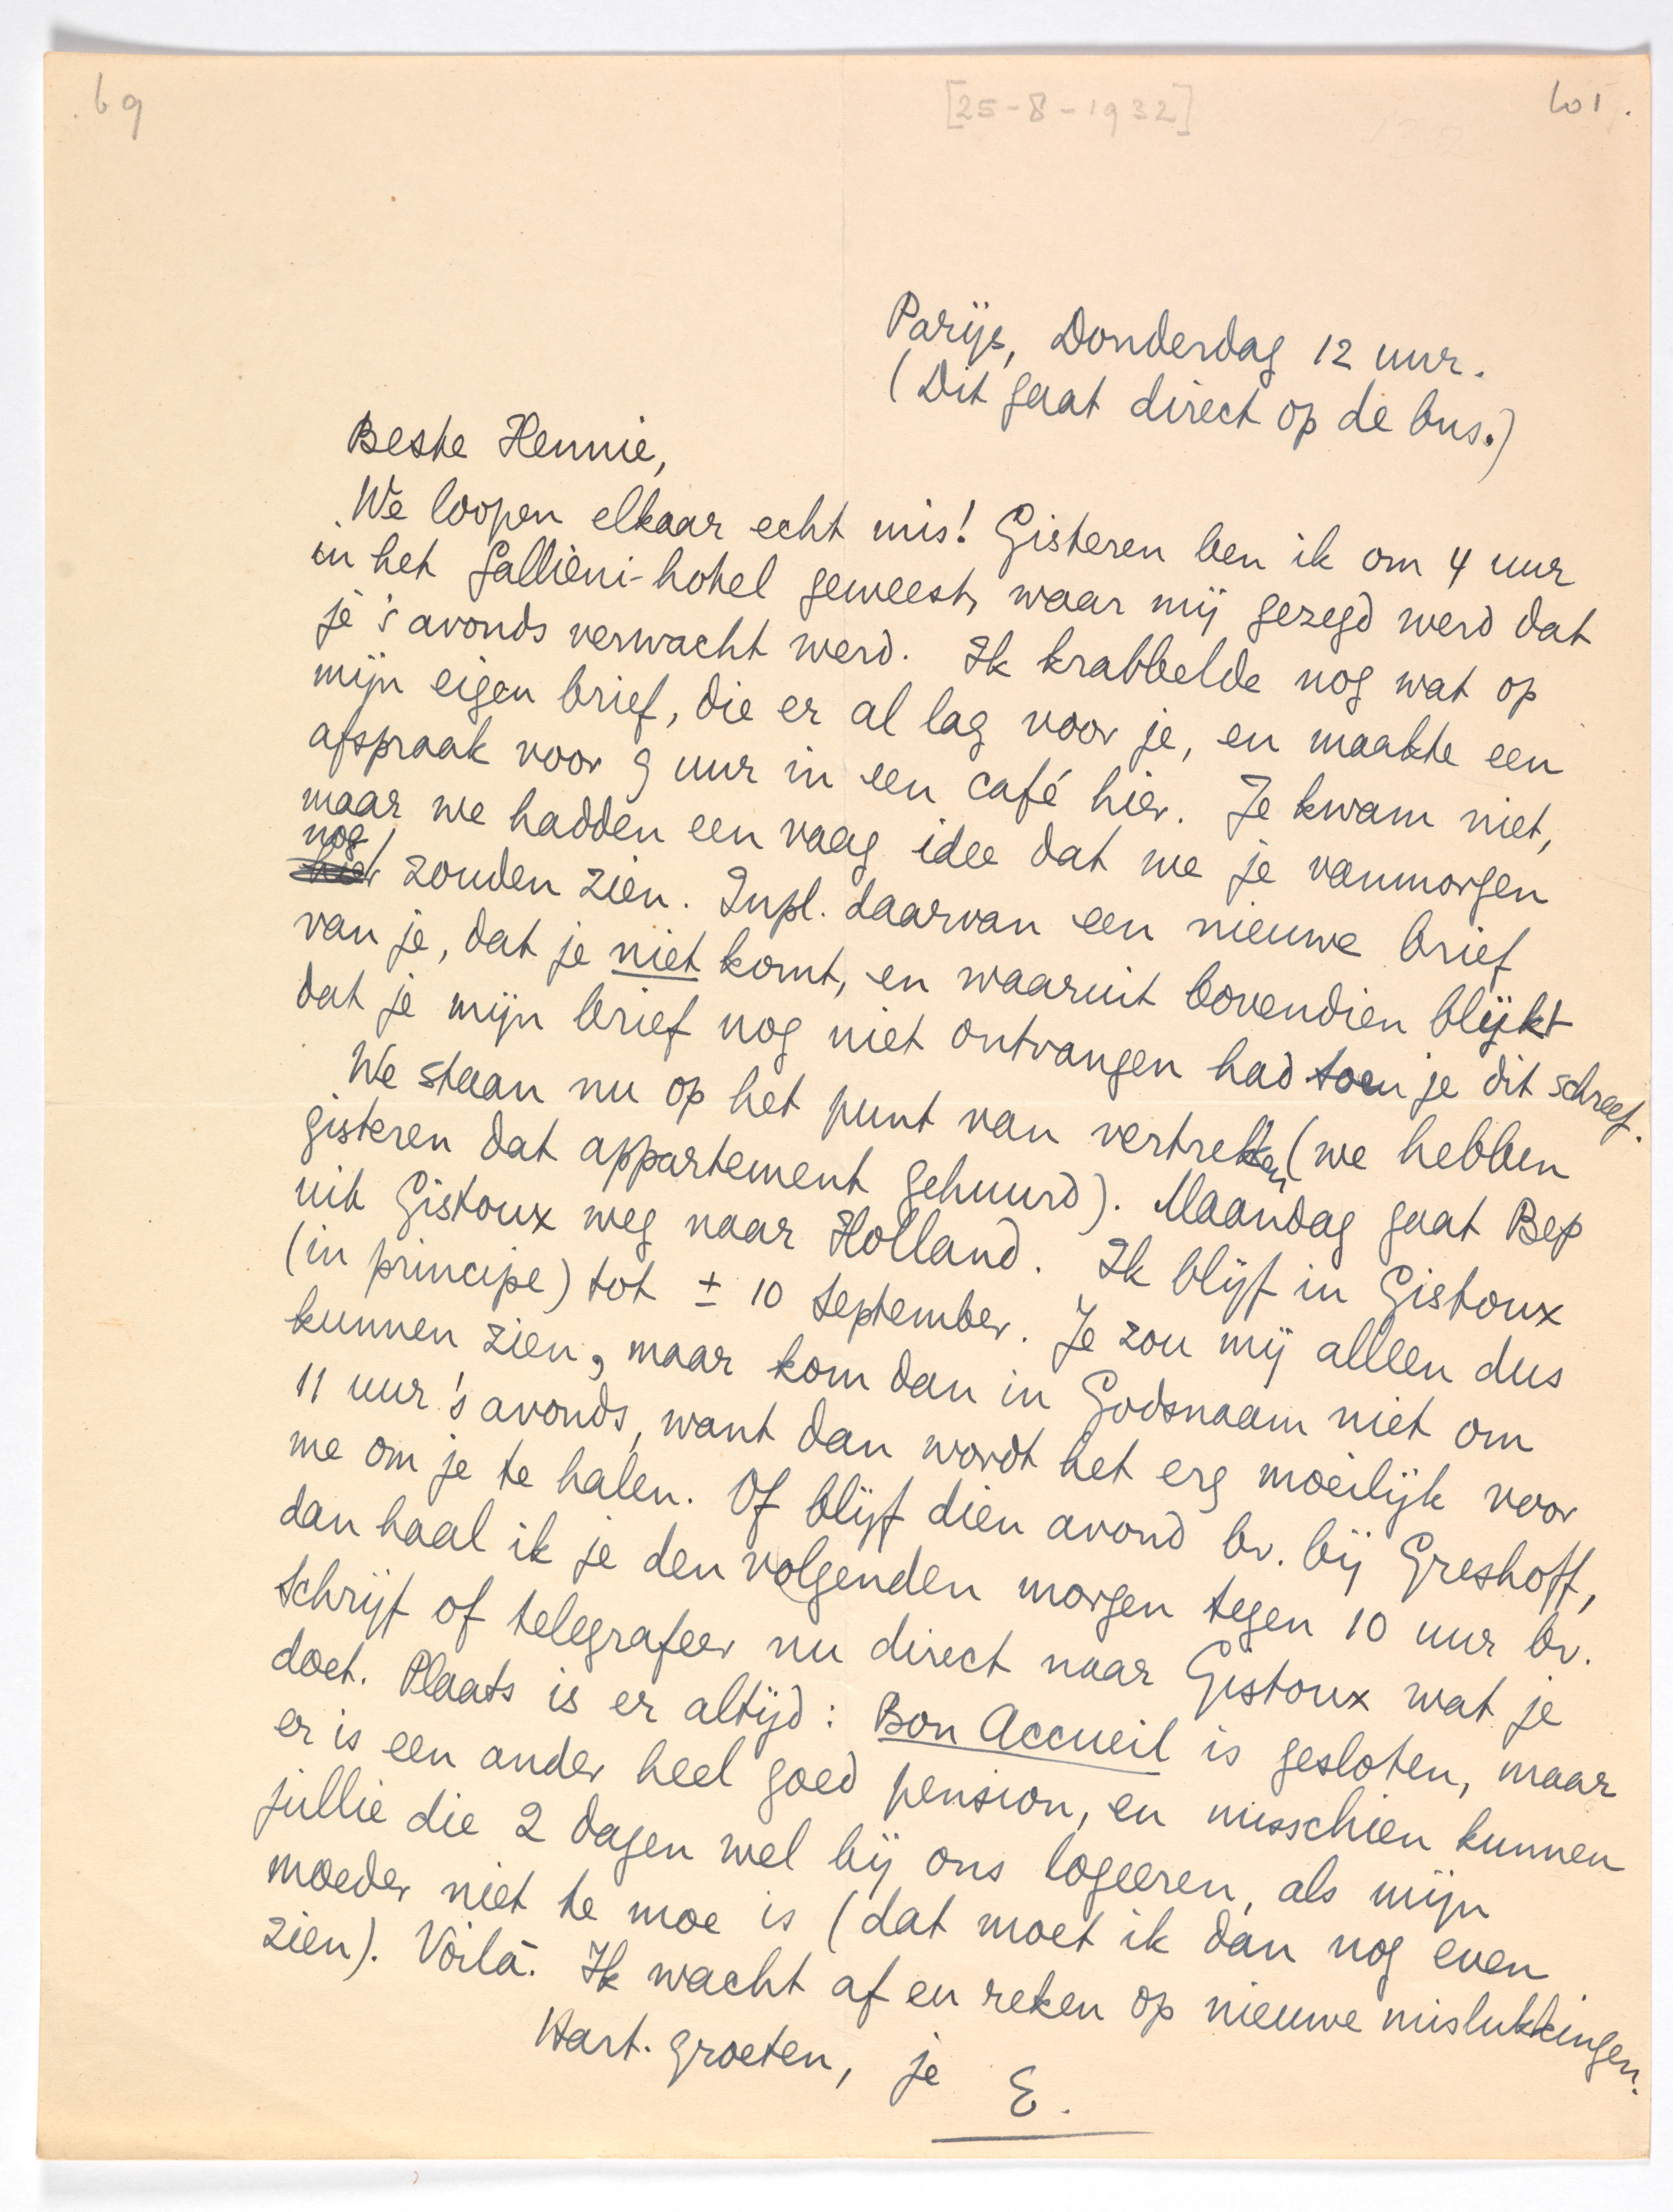 69
[25-8-1932]
601.
Parijs, Donderdag 12 uur.
(Dit gaat direct op de bus.)
Beste Hennie,
We loopen elkaar echt mis! Gisteren ben ik om 4 uur
in het Gallieni-hotel geweest, waar mij gezegd werd dat
je 's avonds verwacht werd. Ik krabbelde nog wat op
mijn eigen brief, die er al lag voor je, en maakte een
afspraak voor 9 uur in een café hier. Je kwam niet,
maar we hadden een vaag idee dat we je vanmorgen
nog
hier zouden zien. Inpl. daarvan een nieuwe brief
van je, dat je niet komt, en waaruit bovendien blijkt
dat je mijn brief nog niet ontvangen had toen je dit schreef.
We staan nu op het punt van vertrekken (we hebben
gisteren dat appartement gehuurd). Maandag gaat Bep
uit Gistoux weg naar Holland. Ik blijf in Gistoux
(in principe) tot ± 10 September. Je zou mij alleen dus
kunnen zien, maar kom dan in Godsnaam niet om
11 uur 's avonds, want dan wordt het erg moeilijk voor
me om je te halen. Of blijf dien avond bv. bij Greshoff,
dan haal ik je den volgenden morgen tegen 10 uur bv.
Schrijf of telegrafeer nu direct naar Gistoux wat je
doet. Plaats is er altijd: Bon Accueil is gesloten, maar
er is een ander heel goed pension, en misschien kunnen
jullie die 2 dagen wel bij ons logeeren, als mijn
moeder niet te moe is (dat moet ik dan nog even
zien). Voilà. Ik wacht af en reken op nieuwe mislukkingen.
Hart. groeten, je E.